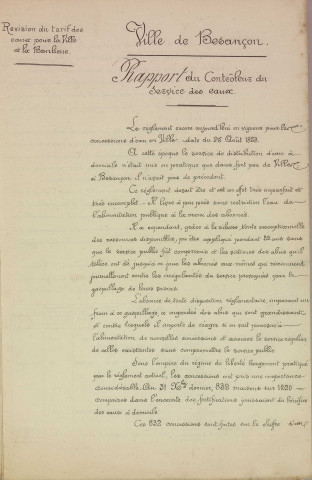 Révision du tarif des
eaux pour la Ville
et la Banlieue.
Ville de Besançon.
Rapport du Contrôleur du
Service des eaux.
Le règlement encore aujourd'hui en vigueur pour les
concessions d'eau en Ville date du 26 Août 1853.
A cette époque le service de distribution d'eau à
domicile n'était mis en pratique que dans fort peu de Villes
et Besançon n'avait pas de précédent.
Ce règlement devait être et est en effet très imparfait et
très incomplet. Il livre à peu près sans restriction l'eau de
l'alimentation publique à la merci des abonnés.
Il a cependant, grâce à la richesse toute exceptionnelle
des ressources disponibles, pu être appliqué pendant ans sans
que le service public fût compromis et les victimes des abus qu'il
tolère ont été jusqu'à ce jour les abonnés eux-mêmes qui réclament
journellement contre les irrégularités du service provoquées par le
gaspillage de leurs voisins.
L'absence de toute disposition réglementaire, imposant un
frein à ce gaspillage, a engendré des abus qui vont grandissant
et contre lesquels il importe de réagir si on veut pourvoir à
l'alimentation de nouvelles concessions et assurer le service régulier
de celles existantes sans compromettre le service public.
Sous l'empire du régime de liberté largement pratiqué
par le règlement actuel, les concessions ont pris une importance
considérable. Au 31 Xbre dernier, 832 maisons sur 1250
comprises dans l'enceinte des fortifications jouissaient du bénéfice
des eaux à domicile.
Ces 832 concessions sont faites sur le chiffre d'un